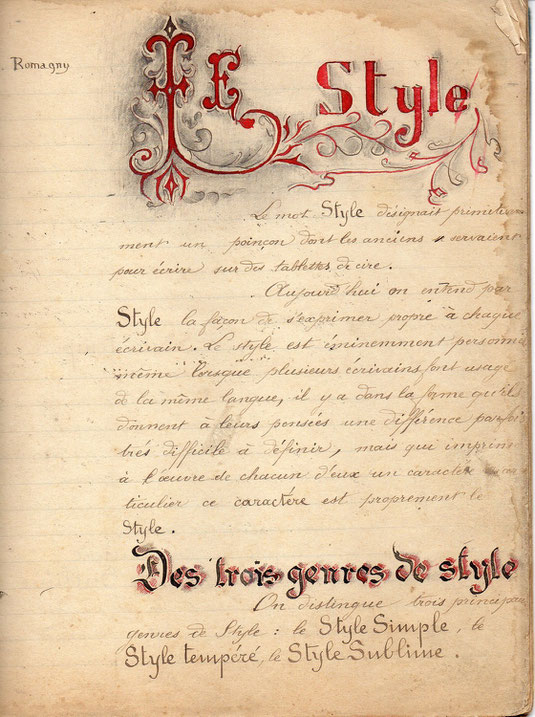 Romagny
Le Style
Le mot Style désignait primitive
ment un poinçon dont les anciens se servaient
pour écrire sur des tablettes de cire.
Aujourd'hui on entend par
Style la façon de s'exprimer propre à chaque
écrivain. Le style est éminemment personnel
même lorsque plusieurs écrivains font usage
de la même langue, il y a dans la forme qu'ils
donnent à leurs pensées une différence parfois
très difficile à définir, mais qui imprime
à l'œuvre de chacun d'eux un caractère par
ticulier ce caractère est proprement le
Style.
Des trois genres de style
On distingue trois principaux
genres de Style : le Style Simple, le
Style tempéré, le Style Sublime.